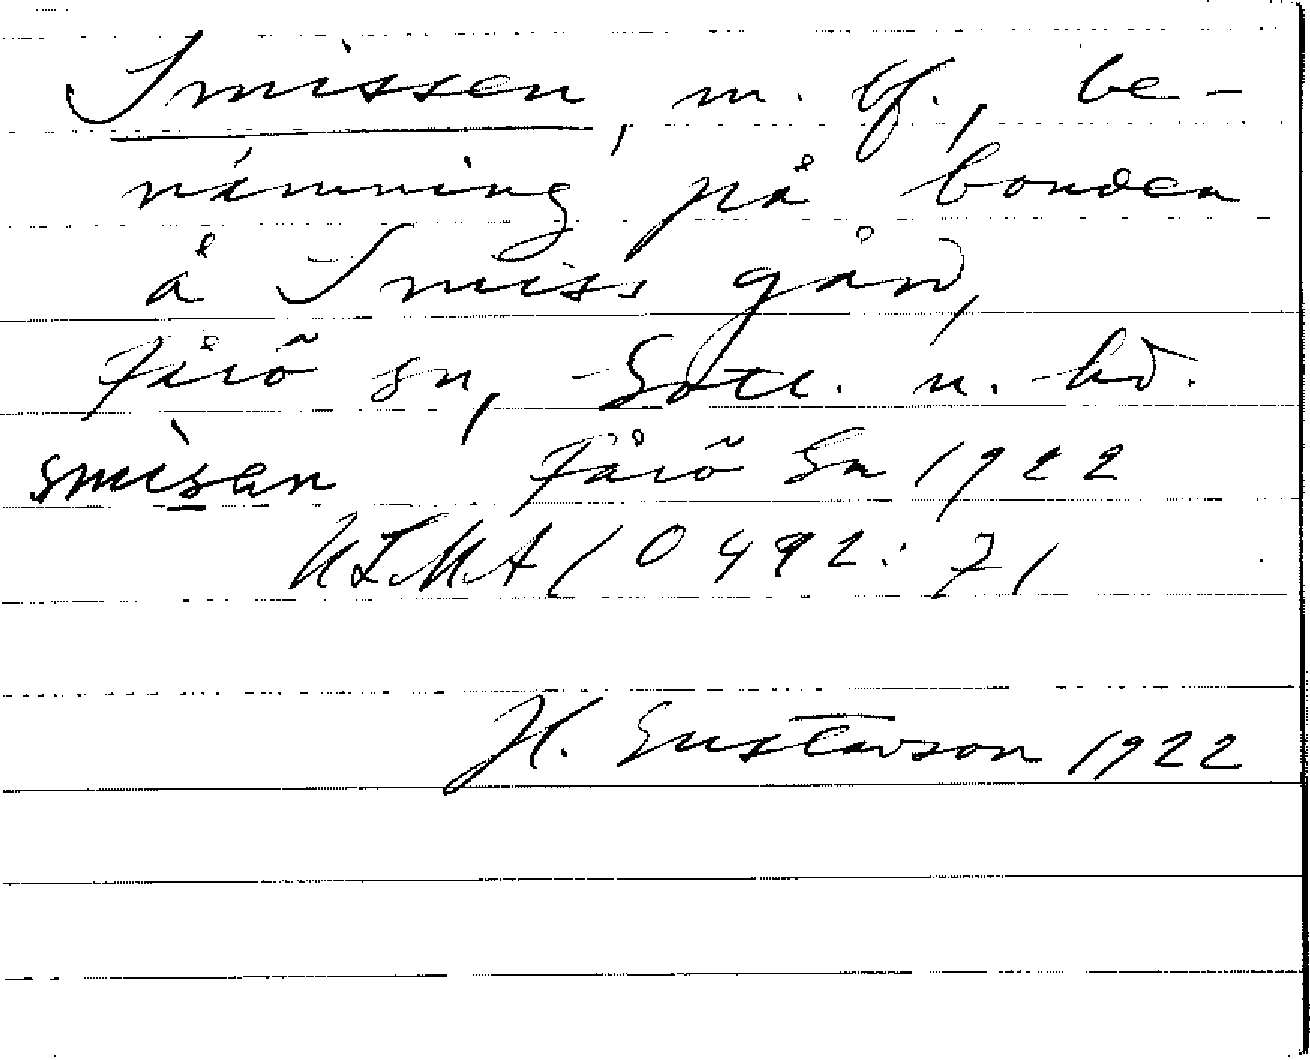 Smissen, m. bf., be-
nämning på bonden
å Smiss gård,
Fårö sn, Gotl. n. hd.
smìsən Fårö Sn 1922
ULMA 10492: 71
H. Gustavson 1922